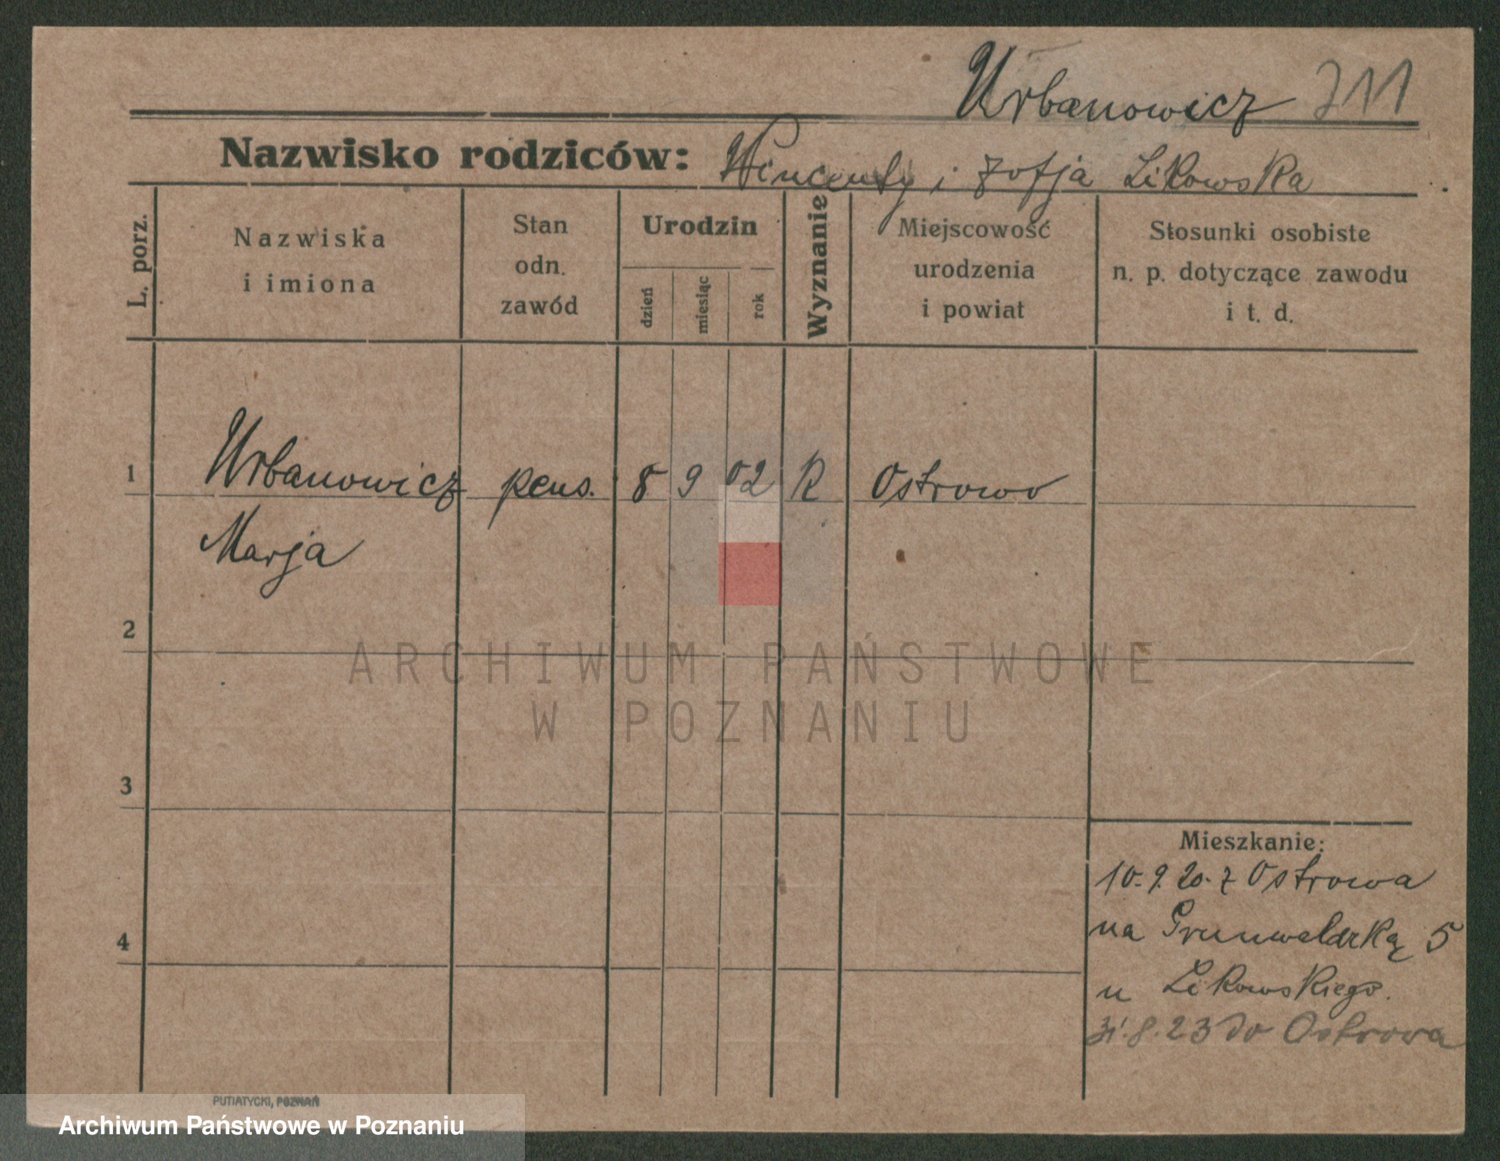 Urbanowicz 711
Nazwisko rodziców: Wincenty i Zofja Likowska
L. porz.
Nazwiska
i imiona
Stan
odn.
zawód
Urodzin
dzień
miesiąc
rok
Wyznanie
Miejscowość
urodzenia
i powiat
Stosunki osobiste
n. p. dotyczące zawodu
i t. d.
1 Urbanowicz pens. 8 9 02 R Ostrowo
Marja
2
ARCHIWUM PAŃSTWOWE
W POZNANIU
3
Mieszkanie:
10.9.20. z Ostrowa
4
na Grunwaldzką 5
u Likowskiego.
31.8.23 do Ostrowa
PUTIATYCKI, POZNAŃ
Archiwum Państwowe w Poznaniu